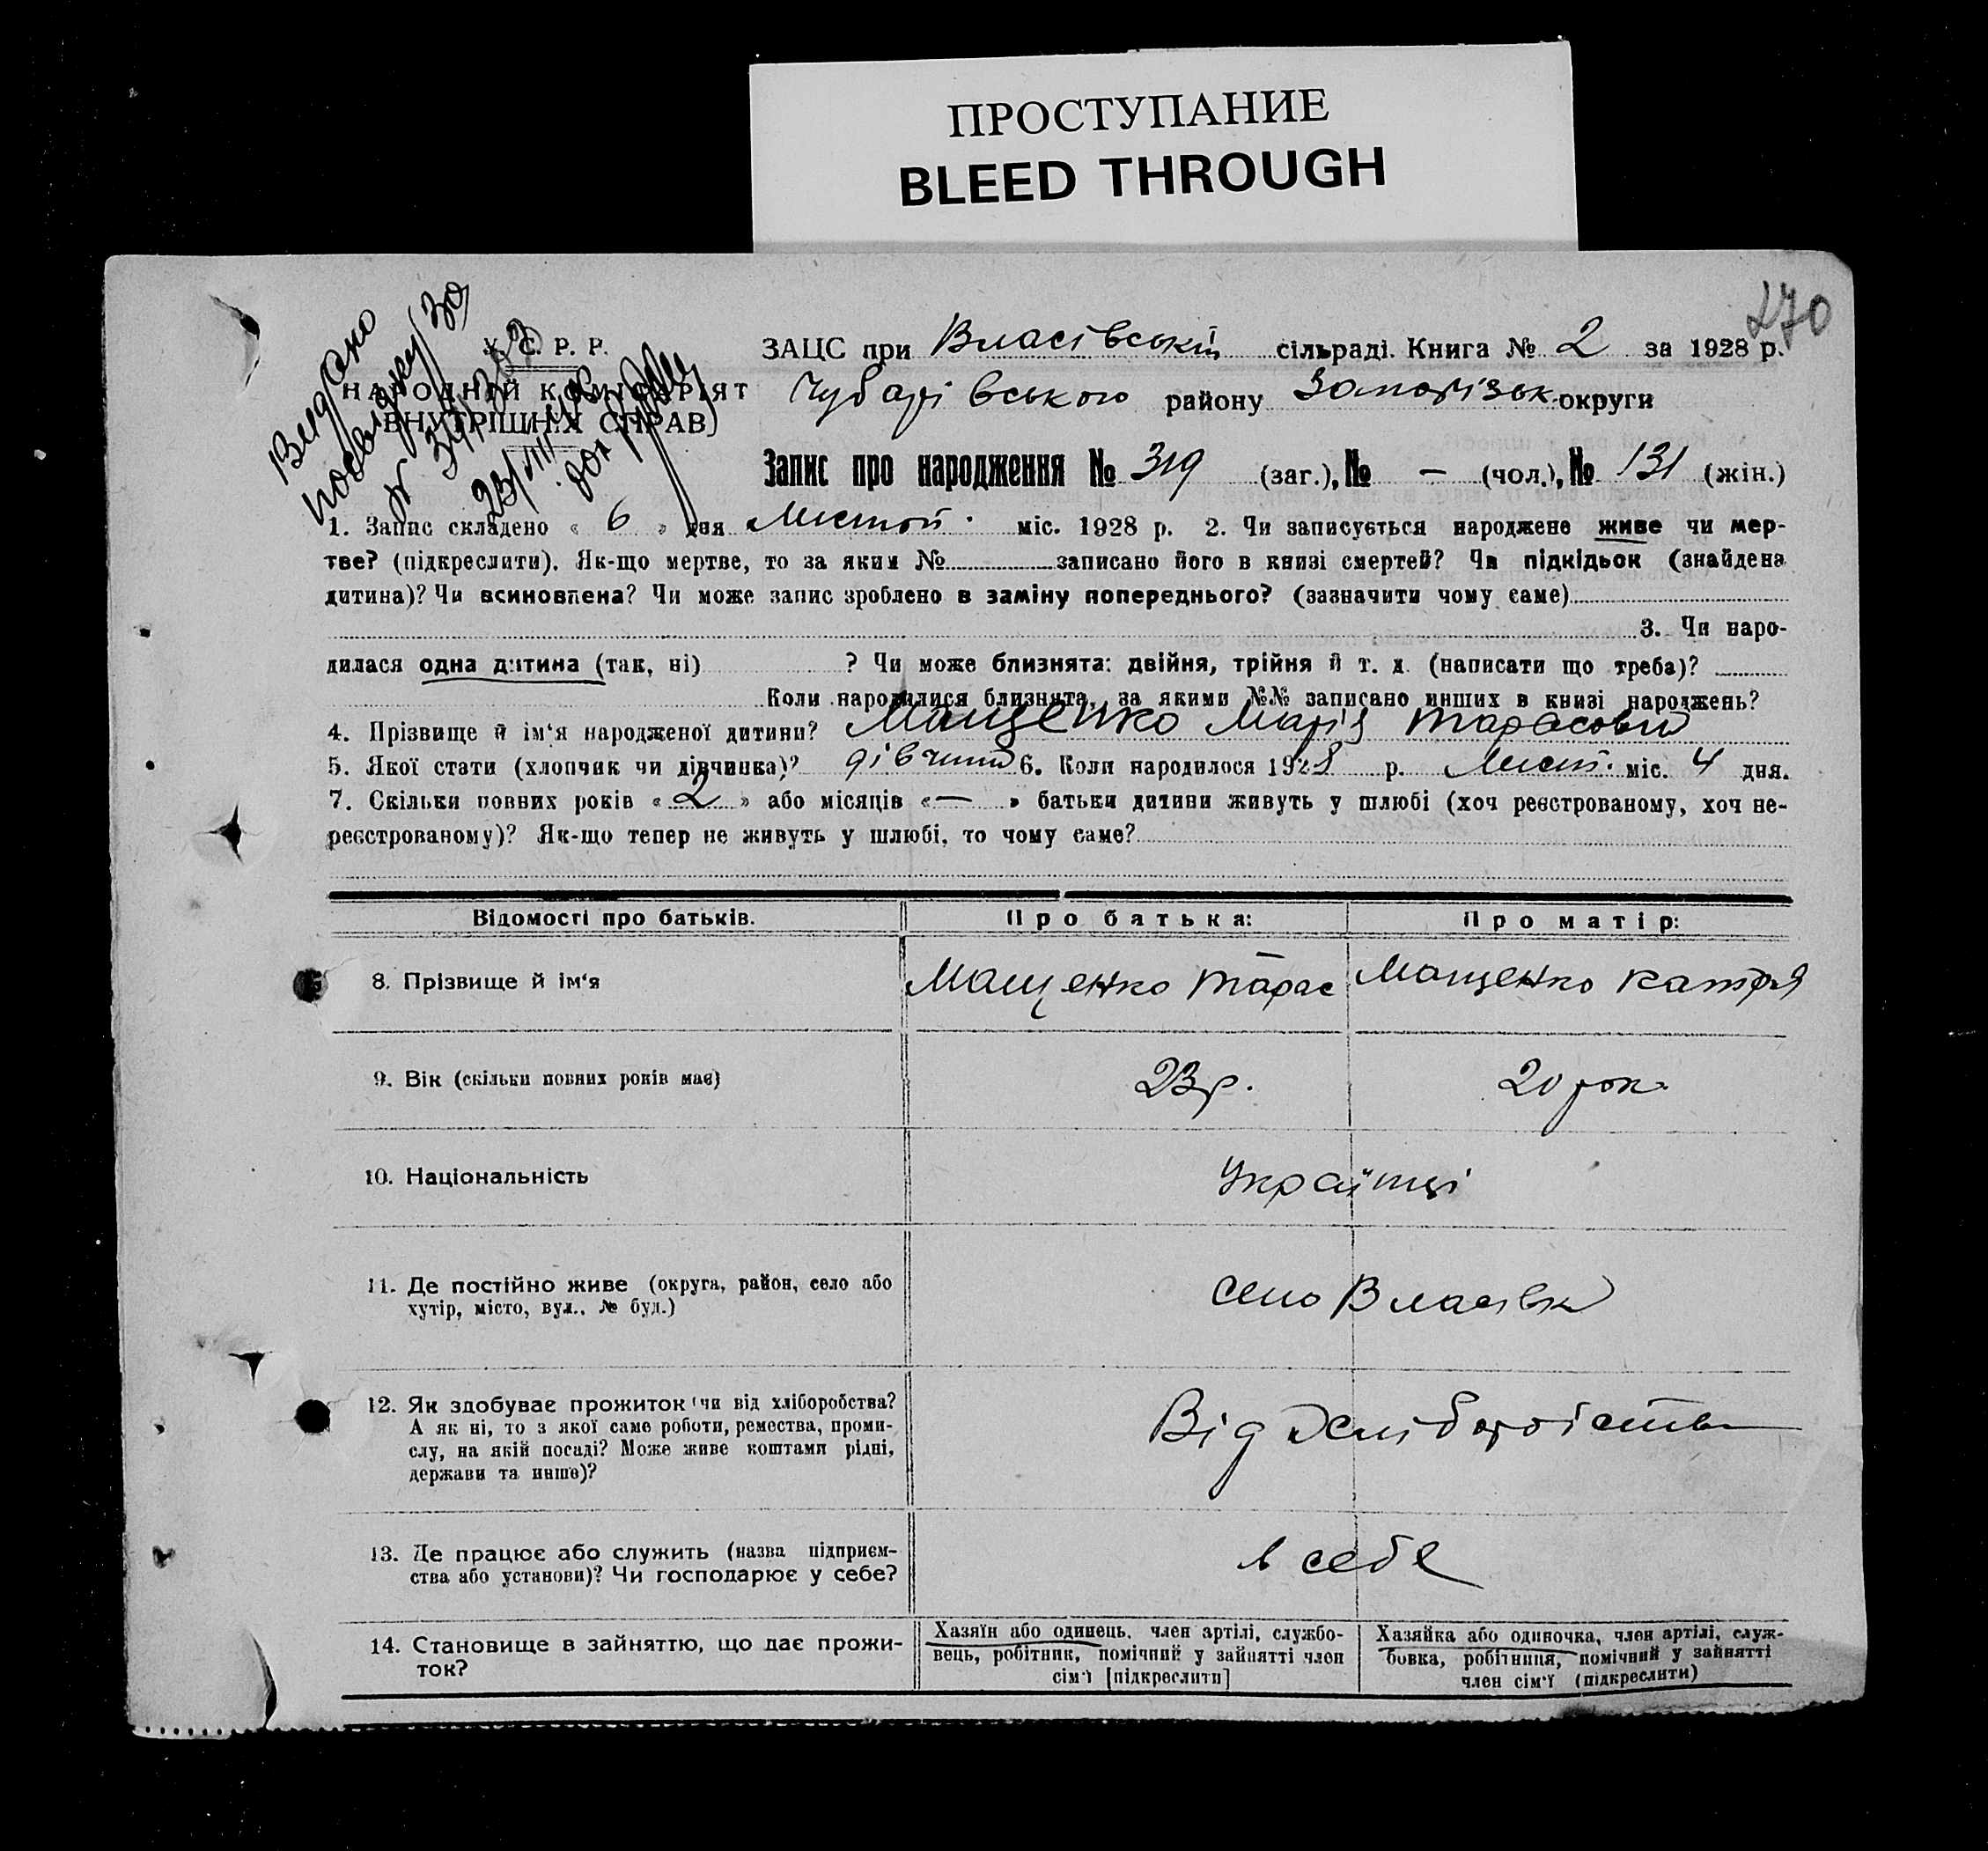 ПРОСТУПАНИЕ
BLEED THROUGH
270
Видано
посвідку
У. С. Р. Р.
НАРОДНІЙ КОМІСАРІЯТ
ВНУТРІШНІХ СПРАВ
ЗАЦС при Власівській сільраді. Книга № 2 за 1928 р.
Чубарівського району Запорізьк округи
Запис про народження № 319 (заг.), № — (чол.), № 131 (жін.)
1. Запис складено « 6 » дня Листоп. міс. 1928 р. 2. Чи записується народжене живе чи мер-
тве? (підкреслити). Як-що мертве, то за яким № записано його в книзі смертей? Чи підкідьок (знайдена
дитина)? Чи всиновлена? Чи може запис зроблено в заміну попереднього? (зазначити чому саме)
3. Чи наро-
дилася одна дитина (так, ні) ? Чи може близнята: двійня, трійня й т. д. (написати що треба)?
Коли народилися близнята, за якими №№ записано инших в книзі народжень?
4. Прізвище й ім‘я народженої дитини? Мащенко Марія Тарасовна
5. Якої стати (хлопчик чи дівчинка)? дівчина 6. Коли народилося 1928 р. Лист. міс. 4 дня.
7. Скільки повних років « 2 » або місяців « — » батьки дитини живуть у шлюбі (хоч реєстрованому, хоч не-
реєстрованому)? Як-що тепер не живуть у шлюбі, то чому саме?
Відомості про батьків. Про батька: Про матір:
8. Прізвище й ім‘я Мащенко Тарас Мащенко Катря
9. Вік (скільки повних років має) 23 р. 20 рок.
10. Національність Українці
11. Де постійно живе (округа, район, село або
хутір, місто, вул., № буд.) село Власівка
12. Як здобуває прожиток чи від хліборобства?
А як ні, то з якої саме роботи, ремества, проми-
слу, на якій посаді? Може живе коштами рідні,
держави та инше)?
Від
13. Де працює або служить (назва підприєм-
ства або установи)? Чи господарює у себе?
в себе
14. Становище в зайняттю, що дає прожи-
ток?
Хазяїн або одинець, член артілі, службо-
вець, робітник, помічний у зайнятті член
сім'ї [підкреслити]
Хазяйка або одиночка, член артілі, служ-
бовка, робітниця, помічний у зайнятті
член сім'ї (підкреслити)